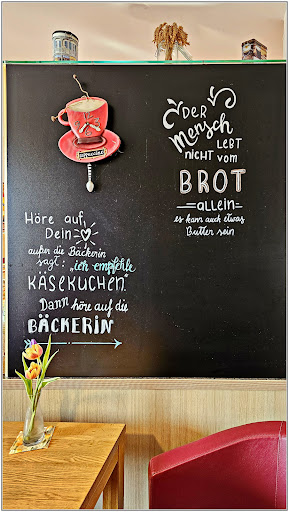 cappuccino
DER
Mensch
LEBT
NICHT vom
BROT
allein
es kann auch etwas
Butter sein
Höre auf
Dein
außer die Bäckerin
sagt: "ich empfehle
KÄSEKUCHEN."
Dann höre auf die
BÄCKERIN